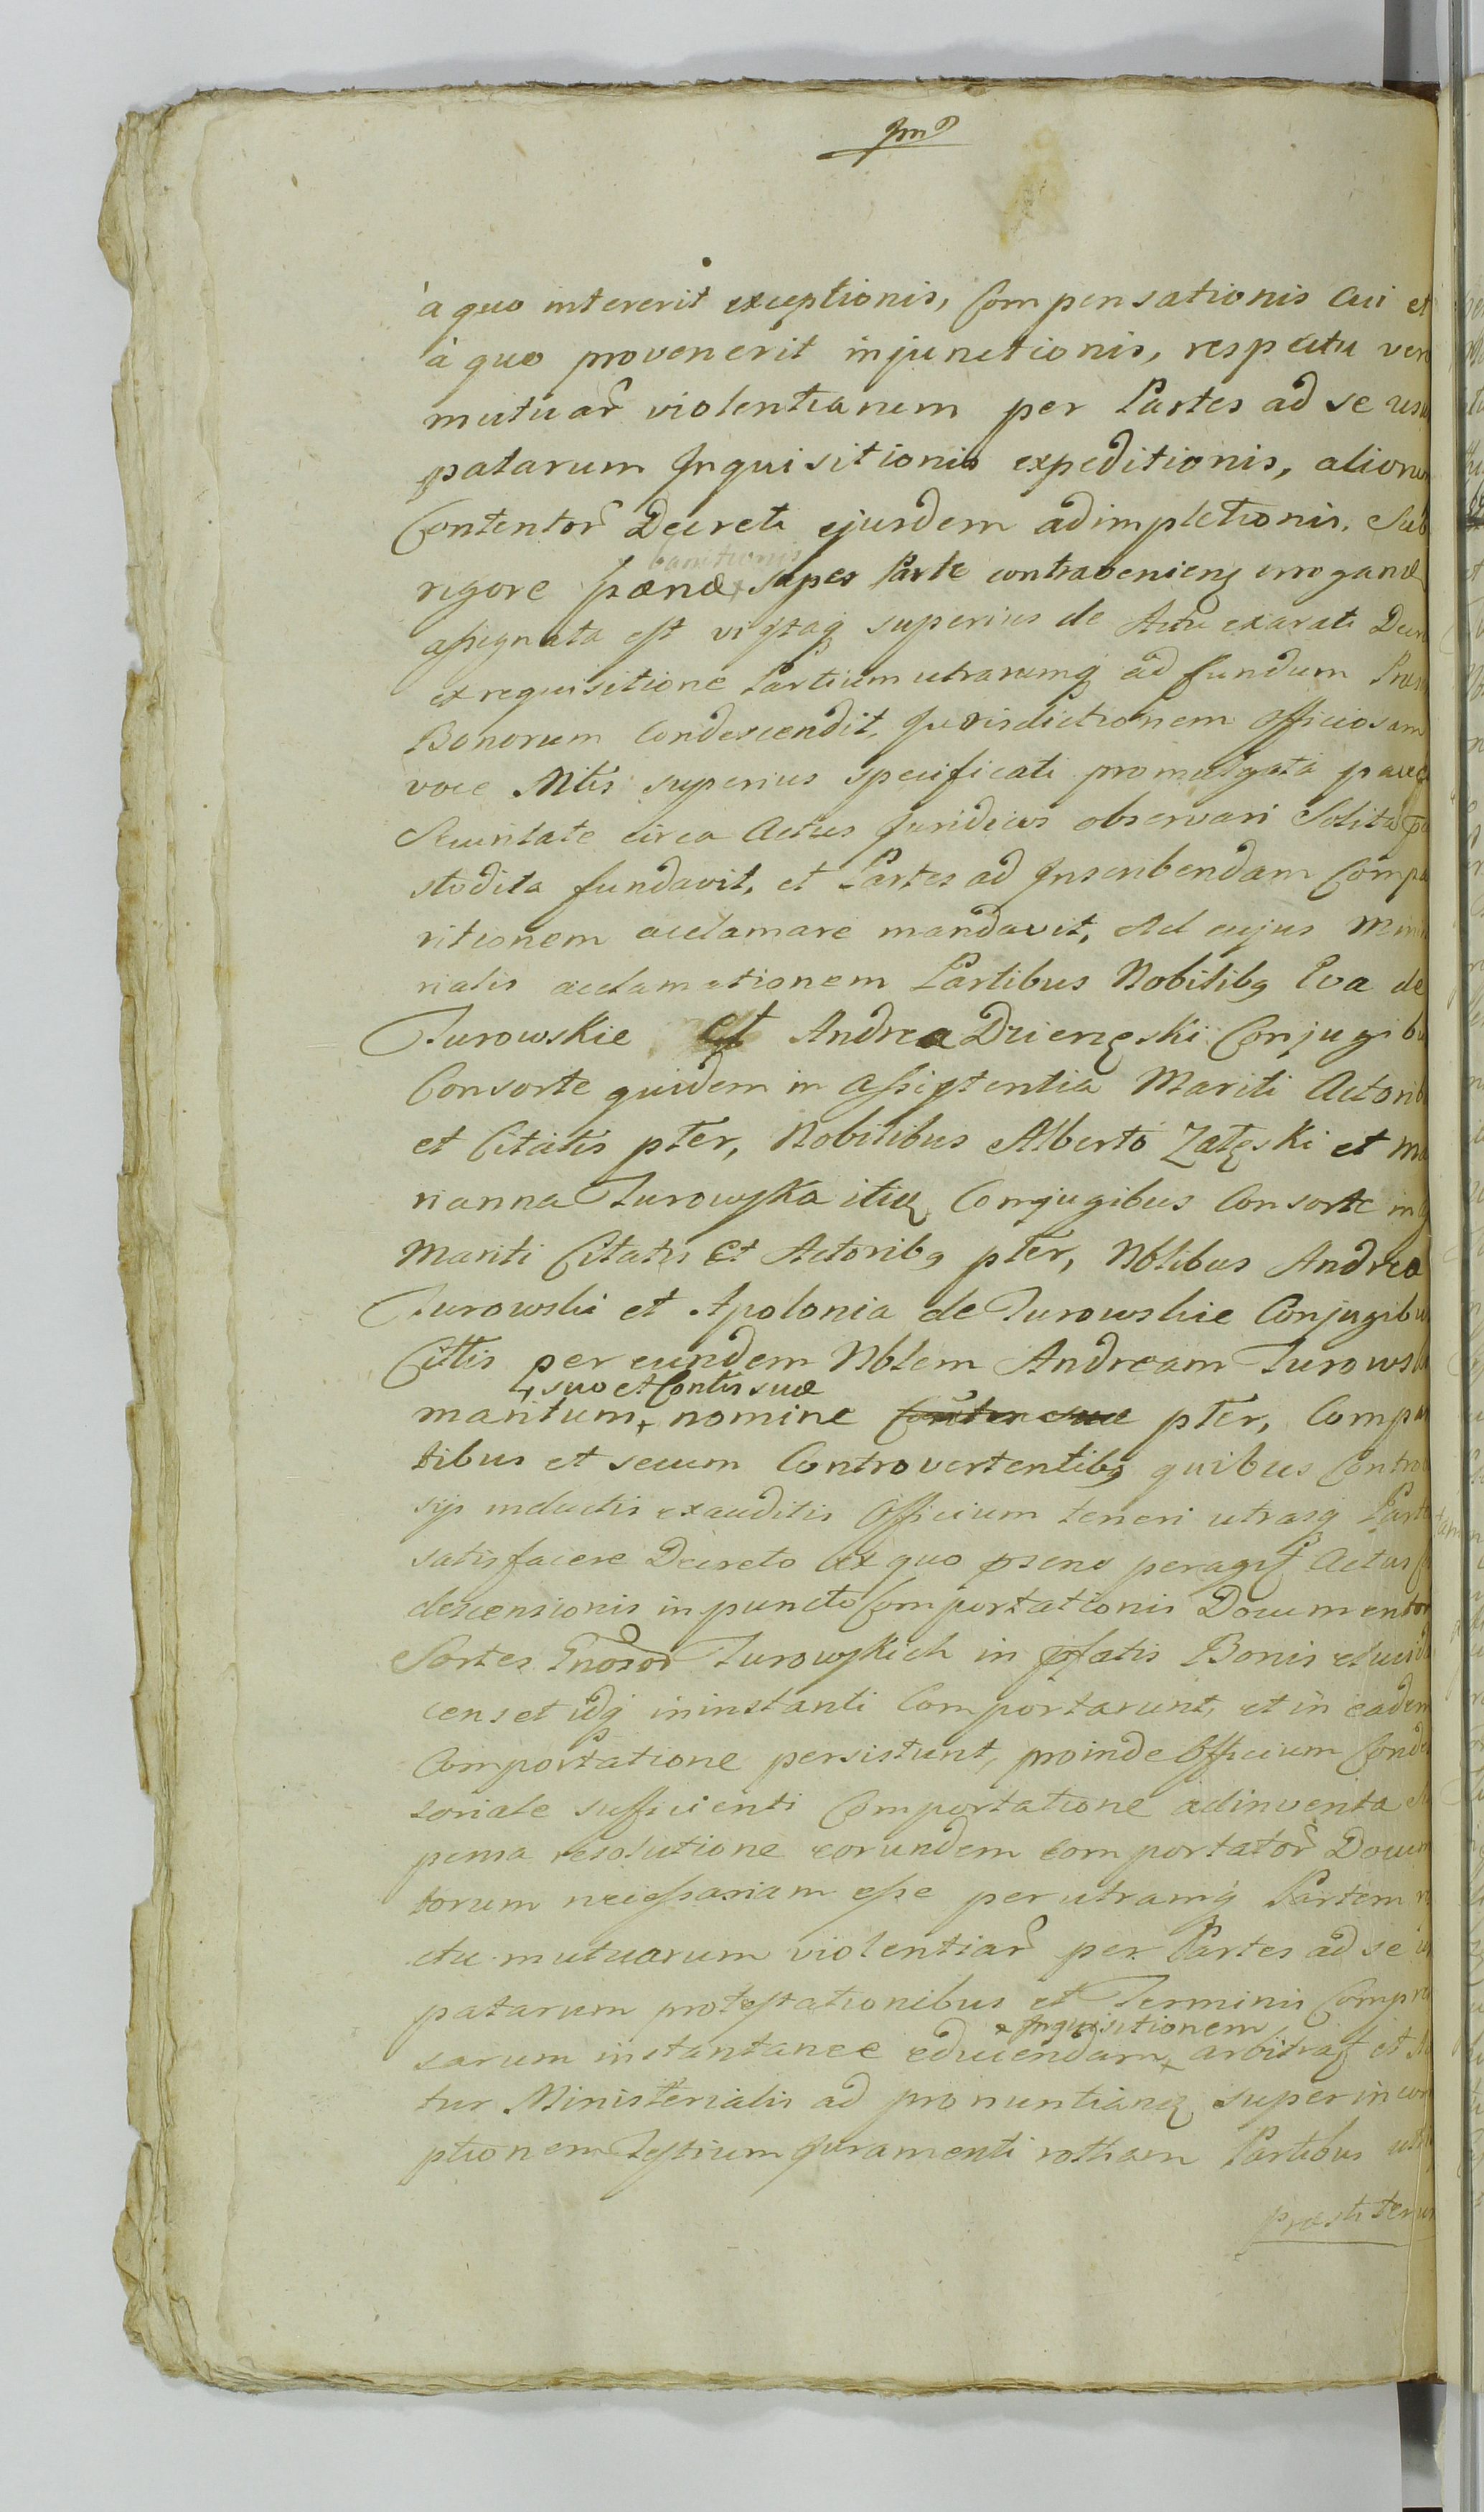 à quo intererit exceptionis, Compensationis Cui et
à quo provenerit injunctionis, respectu vero
mutuar violentiarum per Partes ad se usu
patarum Inquisitionis expeditionis, aliorum
Contentor Decreti ejusdem adimpletionis, Sub
banitionis
rigore pænæ super Parte contravenienę irroganę
assignata est superius de Actu exarati Decre
ex requisitione Partium utrarumq ad fundum
Bonorum Condescendit, Jurisdictionem Officiosam
voce Mtis superius specificati promulgata paceq
Securitate circa Actus Juridicos observari Solita
stodita fundavit, et Partes ad Inscribendam Compa
ritionem acclamare mandavit, Ad cujus Mini
rialis acclamationem Partibus Nobilibq Eva de
Turowskie et Andrea Dzienęski Conjugibu
Consorte quidem in assistentia Mariti Actorib
et Citatis pter, Nobilibus Alberto Załęski et Ma
rianna Turowska itię Conjugibus Consorte in
Mariti Citatis et Actoribq pter, Nblibus Andrea
Turowski et Apolonia de Turowskie Conjugibu
Cittis per eundem Nblem Andream Turowsk
suo et Contis suæ
maritum nomine pter, Compar
tibus et secum Controvertentibq quibus Contro
sijs inductis exauditis Officium teneri utrasq Parte
satisfacere Decreto ex quo pseno peragit Actus
descensionis in puncto Comportationis Documentor
Sortes Gnosor Turowskich in pfatis Bonis elucid
censet idq ininstanti Comportarunt, et in eadem
Comportatione persistunt, proinde Officium Conde
soriale sufficienti Comportatione adinventa
pensa resolutione eorundem comportator Docum
torum necessariam esse per utramq Partem
ctu mutuarum violentiar per Partes ad se
patarum protestationibus et Terminis Compre
Inquisitionem
sarum instantanee educendam arbitrat et
tur Ministerialis ad pronuntianę super
ptionem Testium Juramenti rotham Partibus
præstiterun